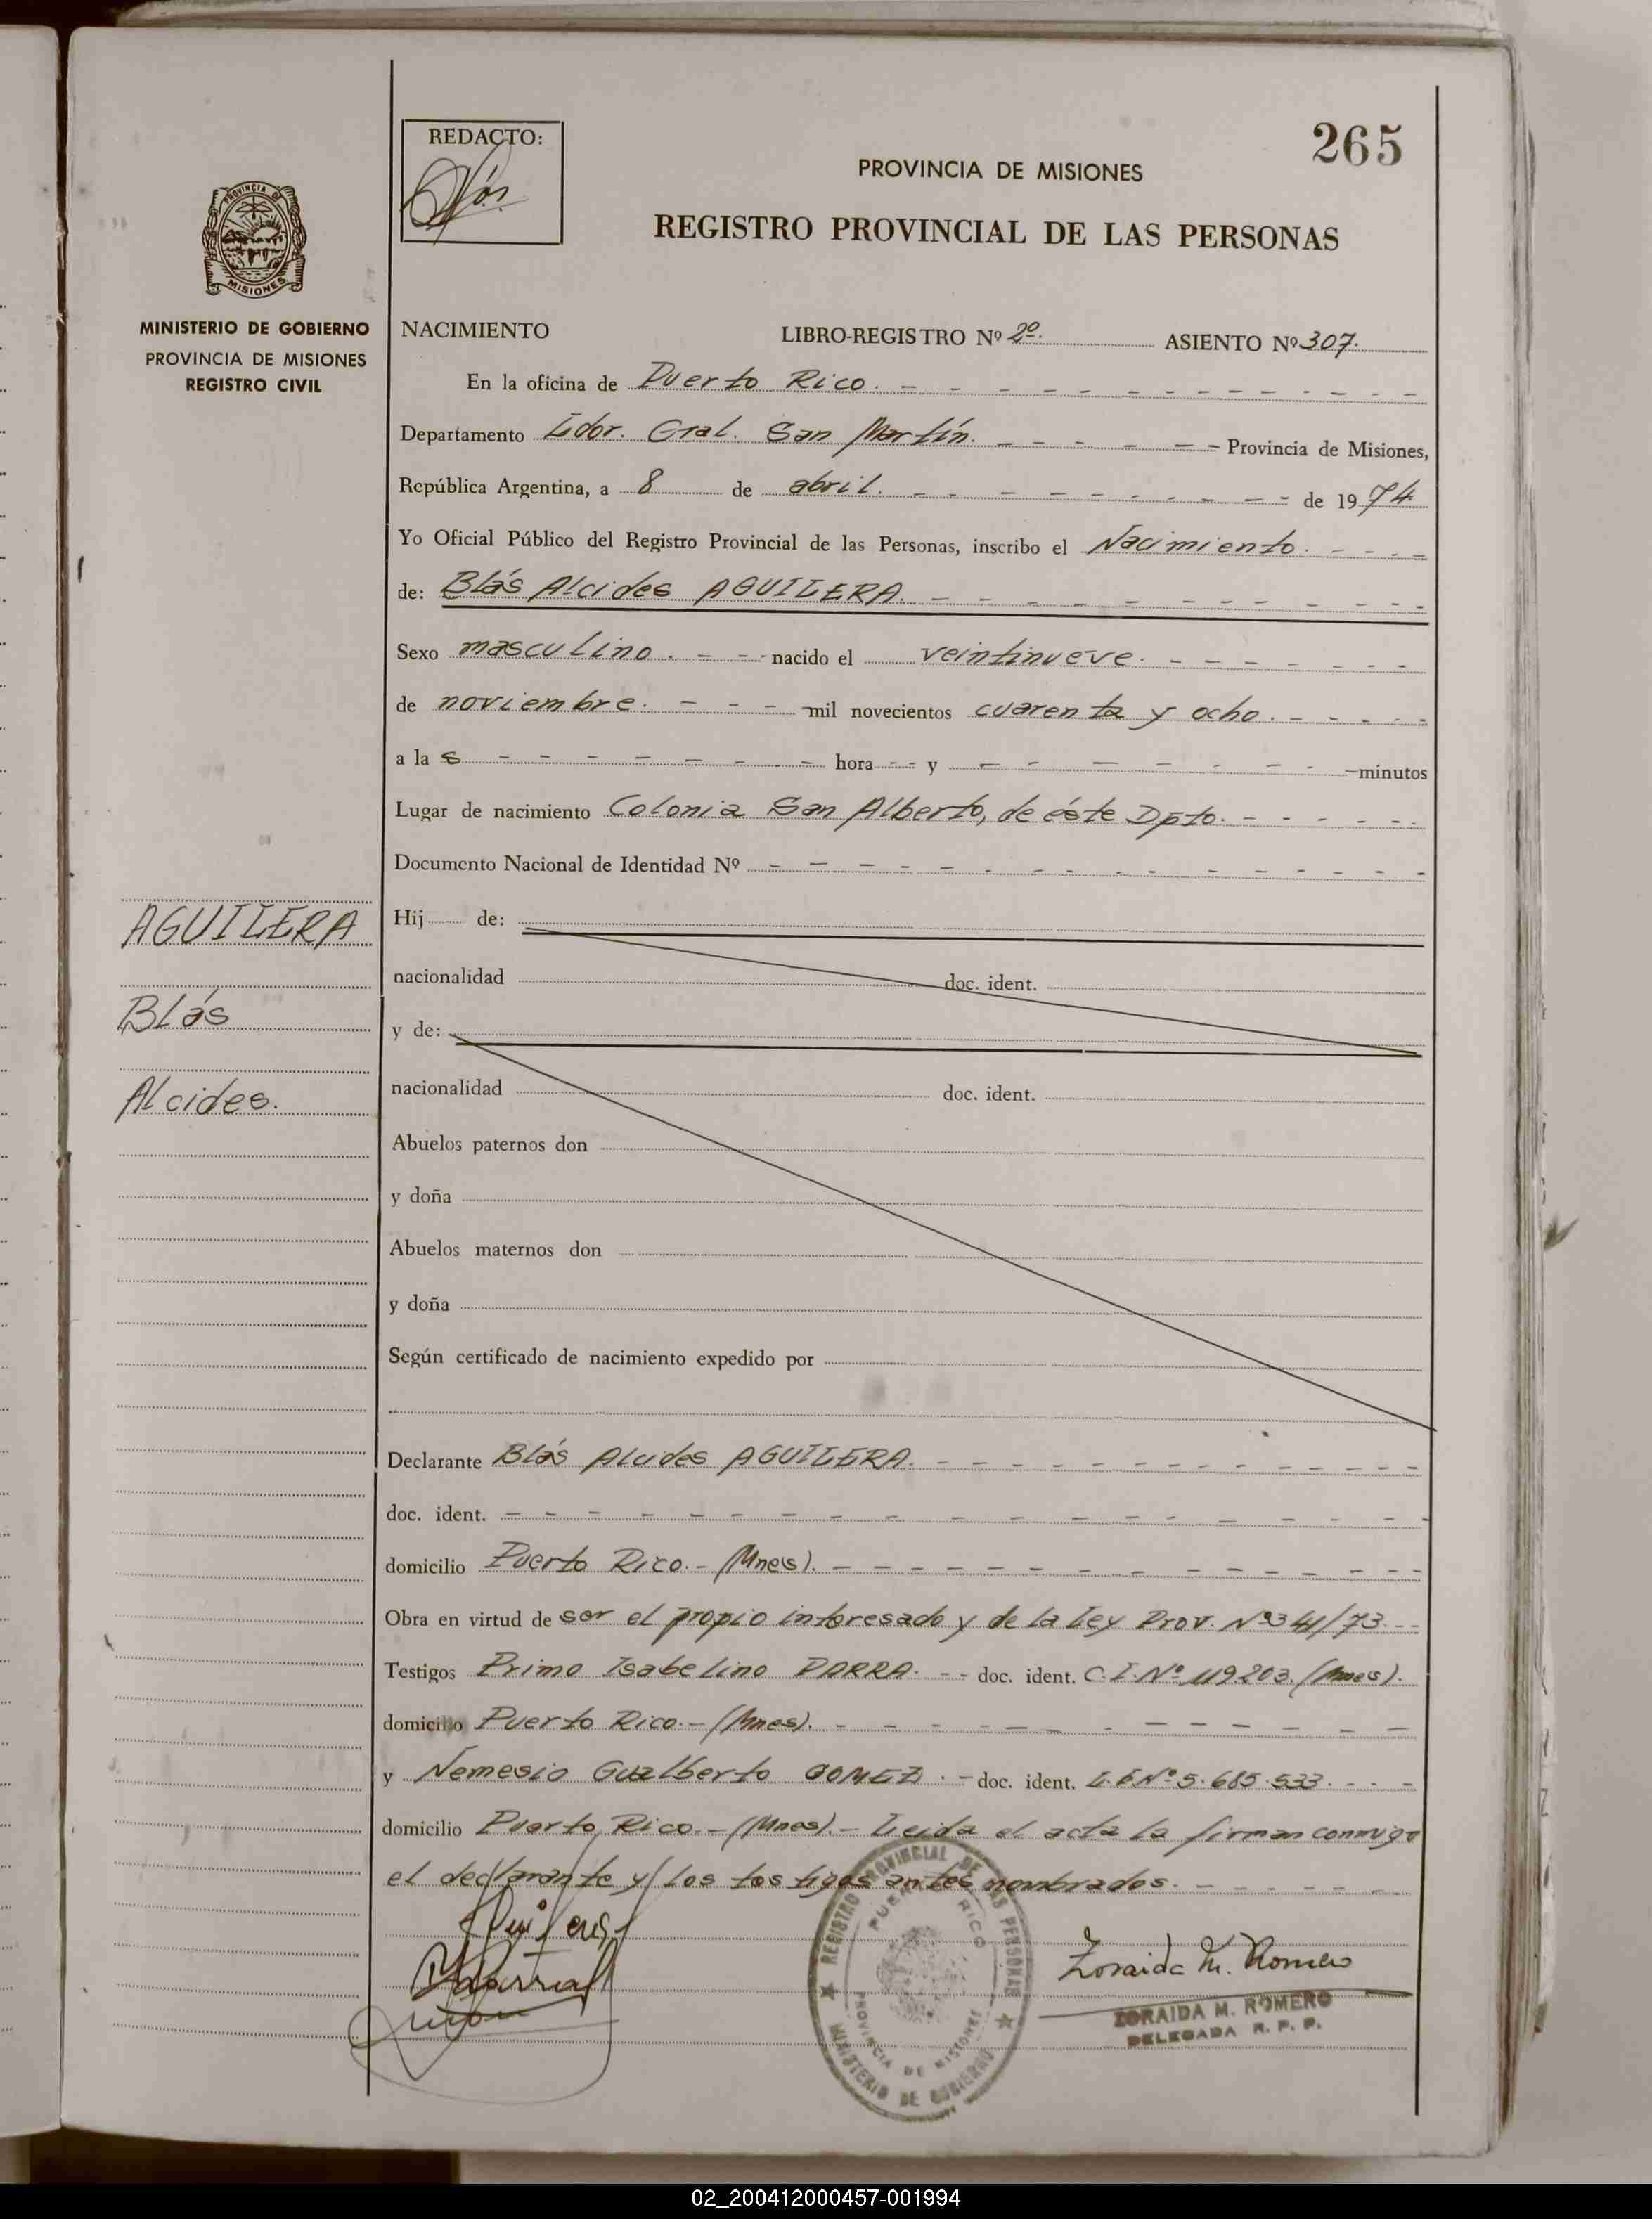 265
REDACTO:
PROVINCIA DE MISIONES
REGISTRO PROVINCIAL DE LAS PERSONAS
PROVINCIA DE
MISIONES
MINISTERIO DE GOBIERNO
PROVINCIA DE MISIONES
REGISTRO CIVIL
NACIMIENTO LIBRO-REGISTRO Nº 2º. ASIENTO Nº 307.
En la oficina de Puerto Rico. - - - - - - - - - -
Departamento Ldor. Gral. San Martín. - - - - - - Provincia de Misiones,
República Argentina, a 8 de abril. - - - - - - - - de 1974
Yo Oficial Público del Registro Provincial de las Personas, inscribo el Nacimiento. - - - -
de: Blás Alcides AGUILERA. - - - - - - - - - -
Sexo masculino. - - - nacido el veintinueve. - - - - - - -
de noviembre. - - - - mil novecientos cuarenta y ocho. - - - - -
a la s - - - - - - - - hora - - - y - - - - - - - - minutos
Lugar de nacimiento Colonia San Alberto, de éste Dpto. - - - - - -
Documento Nacional de Identidad Nº - - - - - - - - - - - -
AGUILERA
Blás
Alcides.
Hij de:
nacionalidad doc. ident.
y de:
nacionalidad doc. ident.
Abuelos paternos don
y doña
Abuelos maternos don
y doña
Según certificado de nacimiento expedido por
Declarante Blás Alcides AGUILERA. - - - - - - - - - -
doc. ident. - - - - - - - - - - - - - -
domicilio Puerto Rico.- (Mnes). - - - - - - - - - - -
Obra en virtud de ser el propio interesado y de la Ley Prov. Nº 341/73. - -
Testigos Primo Isabelino PARRA. - - doc. ident. C.I.Nº 119.203. (Mnes).
domicilio Puerto Rico.- (Mnes). - - - - - - - - - -
y Nemesio Gualberto GOMEZ. - doc. ident. L.E.Nº 5.685.533. - - -
domicilio Puerto Rico.- (Mnes).- Leida el acta la firman conmigo
el declarante y los testigos antes nombrados. - - - - -
REGISTRO PROVINCIAL DE LAS PERSONAS
PUERTO RICO
PROVINCIA DE MISIONES
MINISTERIO DE GOBIERNO
Zoraida M. Romero
ZORAIDA M. ROMERO
DELEGADA R. P. P.
02_200412000457-001994